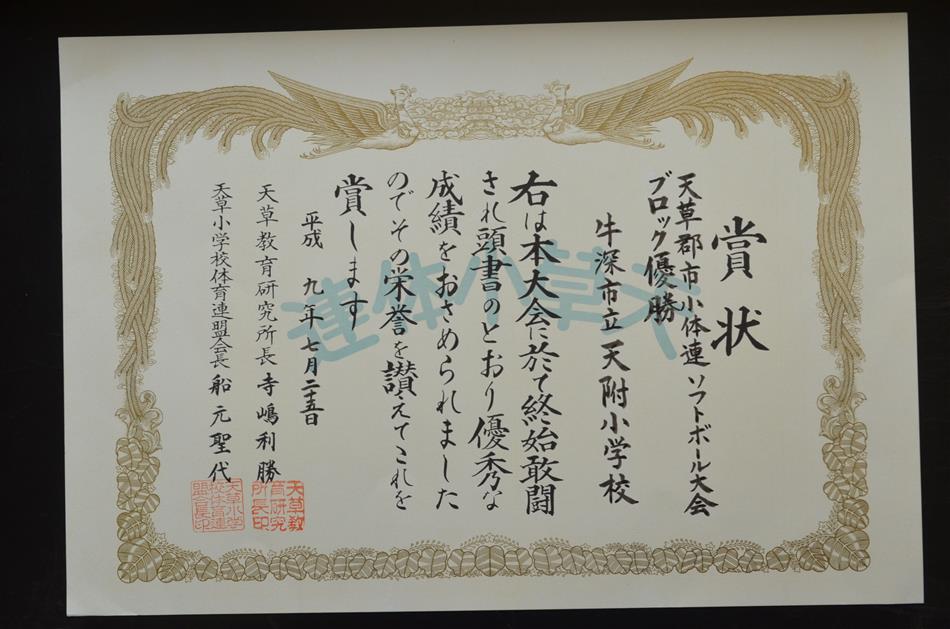 賞状
天草郡市小体連ソフトボール大会
ブロック優勝
牛深市立天附小学校
右は本大会に於て終始敢闘
され頭書のとおり優秀な
成績をおさめられました
のでその栄誉を讃えてこれを
賞します
平成九年七月二五日
天草教育研究所長 寺嶋利勝
天草小学校体育連盟会長 船元聖代
天草小体連
天草教育研究所長印